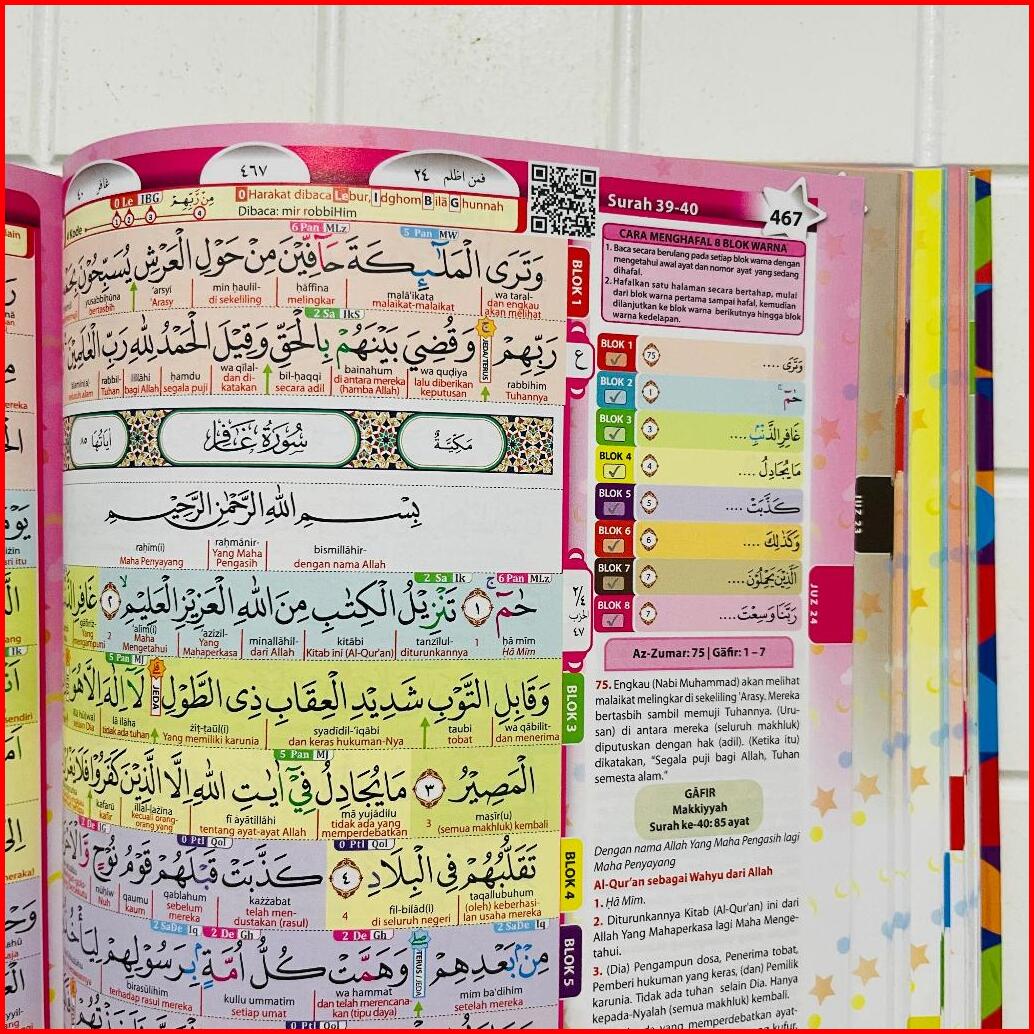 غافر
٤٠
٤٦٧
فمن اظلم ٢٤
0 Le IBG
مِنْ رَّبِّهِمْ
Kode
0 Harakat dibaca Lebur, Idghom Bilā Ghunnah
Dibaca: mir robbiHim
Surah 39-40
467
6 Pan MLz
5 Pan MW
وَتَرَى الْمَلٰۤىِٕكَةَ حَاۤفِّيْنَ مِنْ حَوْلِ الْعَرْشِ يُسَبِّحُوْنَ
wa taral-
dan engkau akan melihat
malā'ikata
malaikat-malaikat
ḥāffīna
melingkar
min ḥaulil-
di sekeliling
'arsyi
'Arasy
yusabbiḥūna
bertasbih
2 Sa IkS
رَبِّهِمْۚ وَقُضِيَ بَيْنَهُمْ بِالْحَقِّ وَقِيْلَ الْحَمْدُ لِلّٰهِ رَبِّ الْعٰلَمِيْنَ
JEDA/TERUS
rabbihim
Tuhannya
wa quḍiya
lalu diberikan keputusan
bainahum
di antara mereka (hamba Allah)
bil-ḥaqqi
secara adil
wa qilal-
dan di-katakan
ḥamdu
segala puji
lillāhi
bagi Allah
rabbil-
Tuhan
مَكِّيَّةٌ
سُوْرَةُ غَافِر
اٰيَاتُهَا ٨٥
بِسْمِ اللّٰهِ الرَّحْمٰنِ الرَّحِيْمِ
bismillāhir-
dengan nama Allah
raḥmānir-
Yang Maha Pengasih
raḥīm(i)
Maha Penyayang
2 Sa Ik
6 Pan MLz
حٰمۤ ۚ ١ تَنْزِيْلُ الْكِتٰبِ مِنَ اللّٰهِ الْعَزِيْزِ الْعَلِيْمِۙ ٢ غَافِرِ
ḥā mīm
Ḥā Mīm
1
tanzīlul-
diturunkannya
kitābi
Kitab ini (Al-Qur'an)
minallāhil-
dari Allah
'azīzil-
Yang Mahaperkasa
'alīm(i)
Maha Mengetahui
2
5 Pan MJ
وَقَابِلِ التَّوْبِ شَدِيْدِ الْعِقَابِ ذِى الطَّوْلِۗ لَآ اِلٰهَ اِلَّا هُوَ
JEDA
wa qābilit-
dan menerima
taubi
tobat
syadīdil-'iqābi
dan keras hukuman-Nya
żiṭ-ṭaūl(i)
Yang memiliki karunia
lā ilāha
tidak ada tuhan
illā huwa
selain Dia
5 Pan MJ
الْمَصِيْرُ ٣ مَا يُجَادِلُ فِيْٓ اٰيٰتِ اللّٰهِ اِلَّا الَّذِيْنَ كَفَرُوْا فَلَا
maṣīr(u)
(semua makhluk) kembali
3
mā yujādilu
tidak ada yang memperdebatkan
fī āyātillāhi
tentang ayat-ayat Allah
illal-lażīna
kecuali orang-orang yang
kafarū
kafir
0 Ptl Qol
0 Ptl Qol
تَقَلُّبُهُمْ فِى الْبِلَادِ ٤ كَذَّبَتْ قَبْلَهُمْ قَوْمُ نُوْحٍ
taqallubuhum
(oleh) keberhasi-lan usaha mereka
fil-bilād(i)
di seluruh negeri
4
każżabat
telah men-dustakan (rasul)
qablahum
sebelum mereka
qaumu
kaum
nūḥiw
Nuh
2 SaDe Iq
2 De Gh
2 De Gh
2 SaDe Iq
مِنْۢ بَعْدِهِمْ ۖ وَهَمَّتْ كُلُّ اُمَّةٍۢ بِرَسُوْلِهِمْ
TERUS / JEDA
mim ba'dihim
setelah mereka
wa hammat
dan telah merencana-kan (tipu daya)
kullu ummatim
setiap umat
birasūlihim
terhadap rasul mereka
0 Ptl Qol
BLOK 1
ع
٢/٤
حزب
٤٧
BLOK 3
BLOK 4
BLOK 5
CARA MENGHAFAL 8 BLOK WARNA
1. Baca secara berulang pada setiap blok warna dengan mengetahui awal ayat dan nomor ayat yang sedang dihafal.
2. Hafalkan satu halaman secara bertahap, mulai dari blok warna pertama sampai hafal, kemudian dilanjutkan ke blok warna berikutnya hingga blok warna kedelapan.
BLOK 1 75 وَتَرَى ....
BLOK 2 1 حٰمۤ
BLOK 3 3 غَافِرِ الذَّنْۢبِ ....
BLOK 4 4 مَا يُجَادِلُ ....
BLOK 5 5 كَذَّبَتْ ....
BLOK 6 6 وَكَذٰلِكَ ....
BLOK 7 7 اَلَّذِيْنَ يَحْمِلُوْنَ ....
BLOK 8 7 رَبَّنَا وَسِعْتَ ....
JUZ 23
JUZ 24
Az-Zumar: 75 | Gāfir: 1 – 7
75. Engkau (Nabi Muhammad) akan melihat
malaikat melingkar di sekeliling 'Arasy. Mereka
bertasbih sambil memuji Tuhannya. (Uru-
san) di antara mereka (seluruh makhluk)
diputuskan dengan hak (adil). (Ketika itu)
dikatakan, "Segala puji bagi Allah, Tuhan
semesta alam."
GĀFIR
Makkiyyah
Surah ke-40: 85 ayat
Dengan nama Allah Yang Maha Pengasih lagi
Maha Penyayang
Al-Qur'an sebagai Wahyu dari Allah
1. Ḥā Mīm.
2. Diturunkannya Kitab (Al-Qur'an) ini dari
Allah Yang Mahaperkasa lagi Maha Menge-
tahui.
3. (Dia) Pengampun dosa, Penerima tobat,
Pemberi hukuman yang keras, (dan) Pemilik
karunia. Tidak ada tuhan selain Dia. Hanya
kepada-Nyalah (semua makhluk) kembali.
yang memperdebatkan ayat-